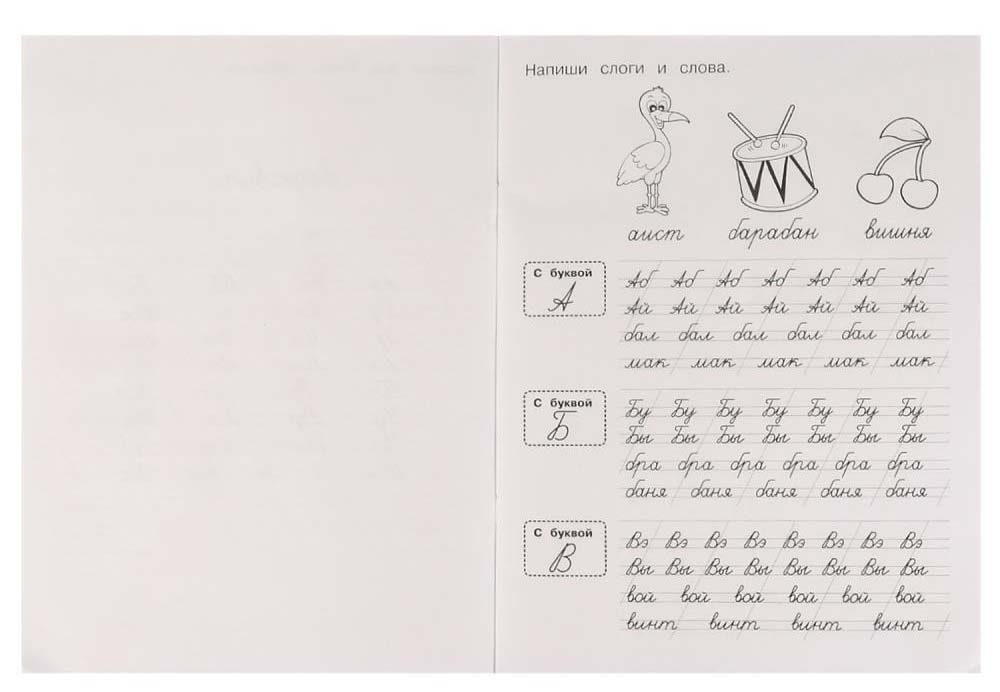 Напиши слоги и слова.
аист барабан вишня
С буквой
А
Аб Аб Аб Аб Аб Аб Аб
Ай Ай Ай Ай Ай Ай Ай
бал бал бал бал бал бал
мак мак мак мак мак
С буквой
Б
Бу Бу Бу Бу Бу Бу Бу
Бы Бы Бы Бы Бы Бы Бы
бра бра бра бра бра бра
баня баня баня баня баня
С буквой
В
Вэ Вэ Вэ Вэ Вэ Вэ Вэ Вэ
Вы Вы Вы Вы Вы Вы Вы Вы
вой вой вой вой вой вой
винт винт винт винт